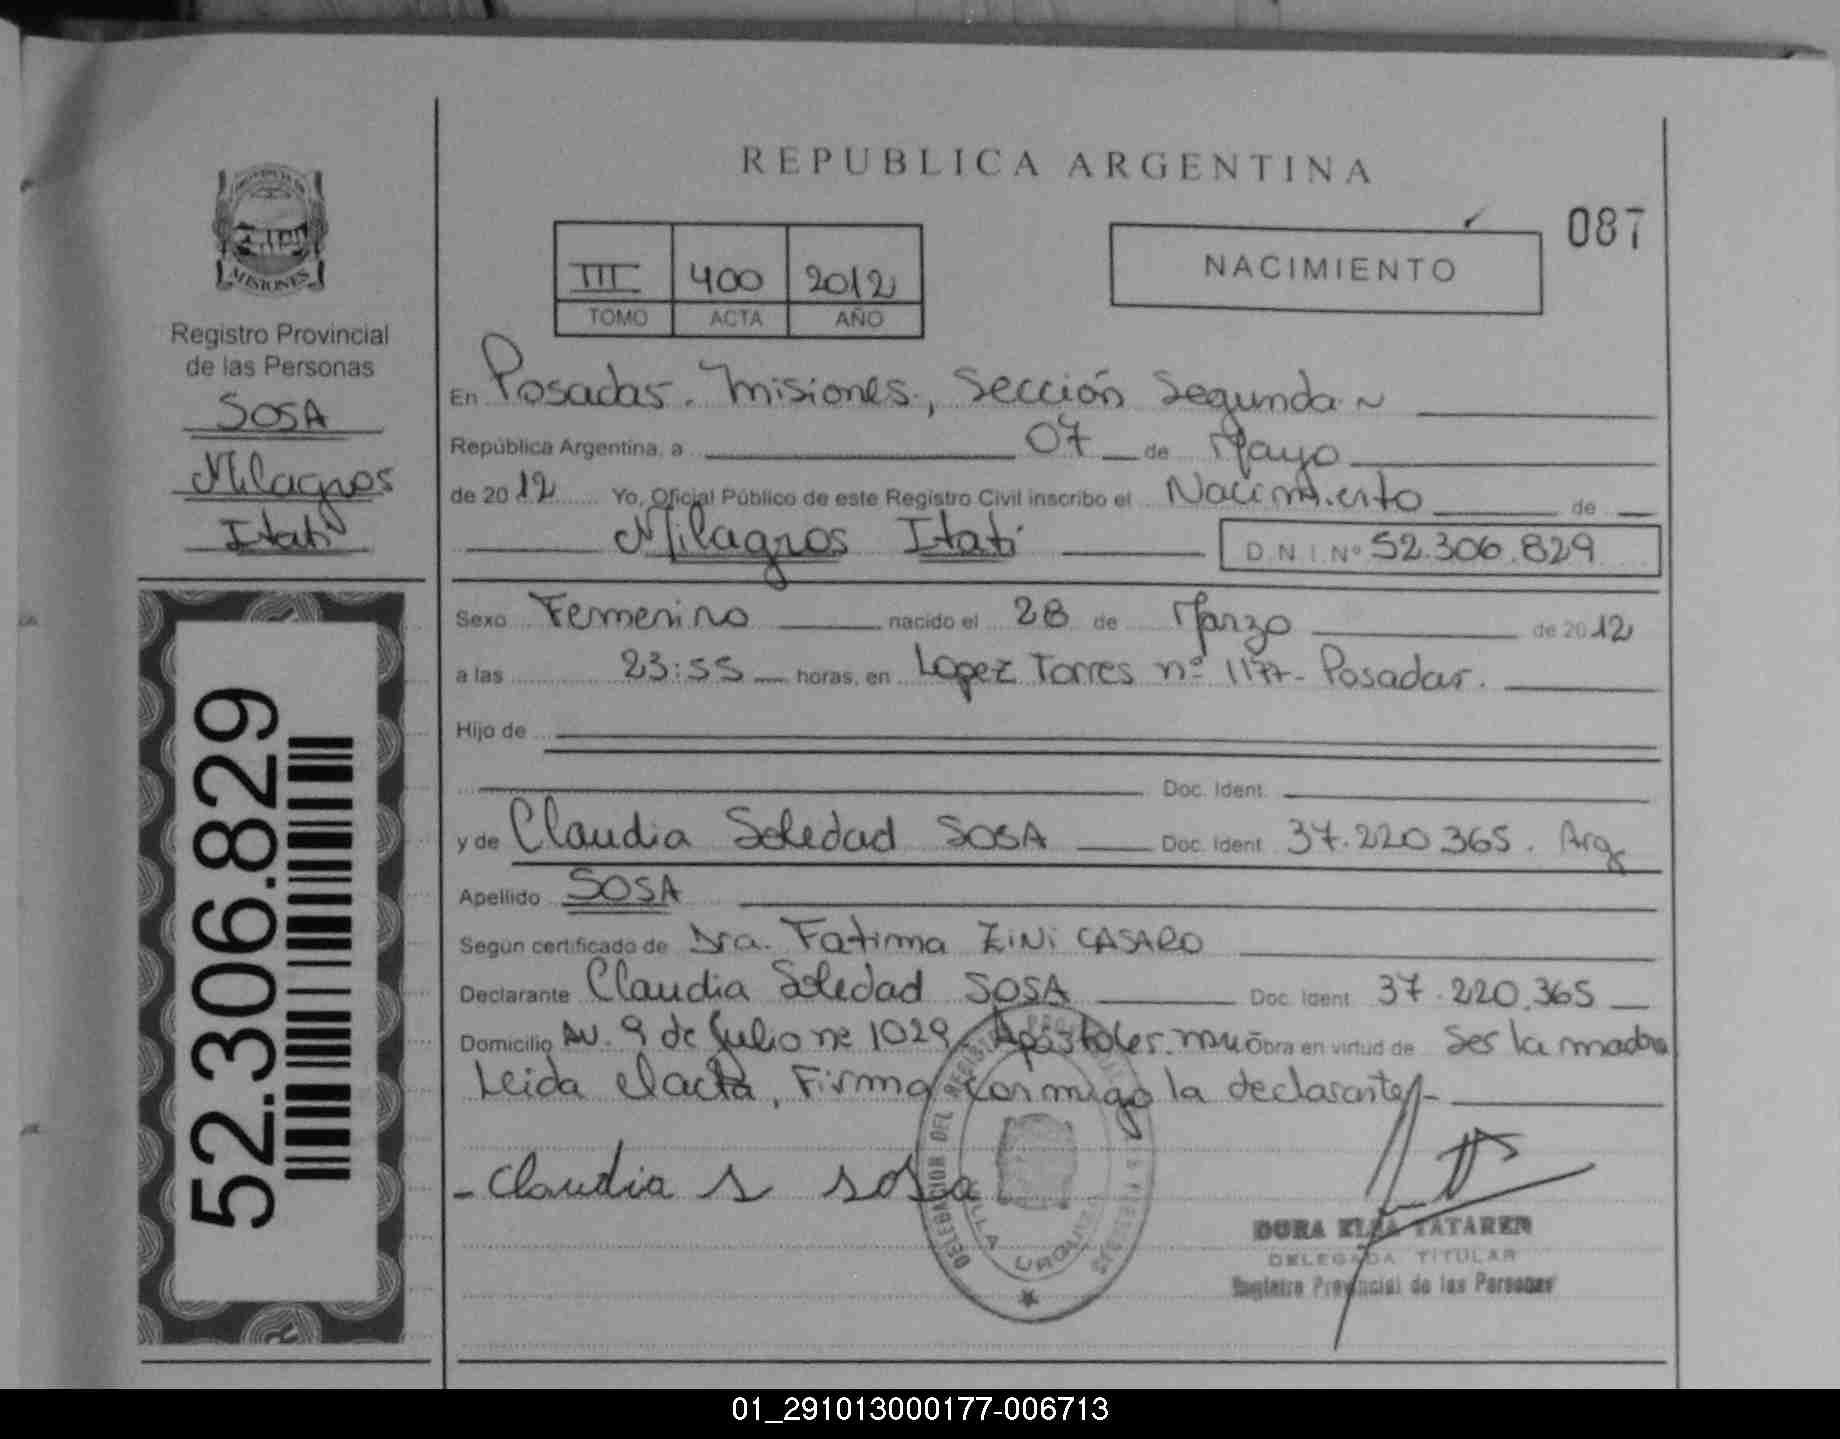 REPUBLICA ARGENTINA
087
III 400 2012
TOMO ACTA AÑO
NACIMIENTO
MISIONES
Registro Provincial
de las Personas
SOSA
Milagros
Itati
52.306.829
En Posadas. Misiones, Sección Segunda
República Argentina, a 07 de Mayo
de 2012 Yo, Oficial Público de este Registro Civil inscribo el Nacimiento de
Milagros Itati D.N.I. Nº 52.306.829
Sexo Femenino nacido el 28 de Marzo de 2012
a las 23:55 horas, en Lopez Torres nº 1177- Posadas.
Hijo de
Doc. Ident.
y de Claudia Soledad SOSA Doc. Ident. 37.220.365. Arg
Apellido SOSA
Según certificado de Dra. Fatima ZINI CASARO
Declarante Claudia Soledad SOSA Doc. Ident. 37.220.365
Domicilio AV. 9 de Julio nº 1029 Apóstoles. Obra en virtud de Ser la madre
Leida el acta, Firma conmigo la declarante-
- Claudia S Sosa
DELEGACION DEL REGISTRO
VILLA URQUIZA
DORA ELSA TATAREN
DELEGADA TITULAR
Registro Provincial de las Personas
01_291013000177-006713